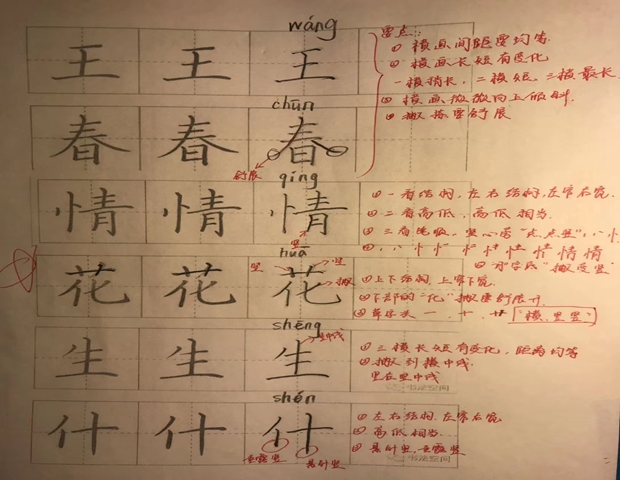 wáng
王 王 王
要点:
① 横画间距要均等
② 横画长短有变化
一横稍长,二横短,三横最长
③ 横画微微向上倾斜.
④ 撇捺要舒展
chūn
春 春 春
舒展
qíng
情 情 情
竖
① 一看结构,左右结构,左窄右宽
② 二看高低,高低相当
qíng
huā
花 花 花
竖
撇
① 上下结构,上窄下宽
② 下部的"化"
③ 草字头 一 十 艹 "横、竖竖"
shēng
生 生 生
竖中线
① 三横长短有变化,距离均等
竖在竖中线
书法空间
shén
什 什 什
垂露竖
悬针竖
① 左右结构,左窄右宽
② 高低相当
③ 悬针竖,垂露竖
书法空间